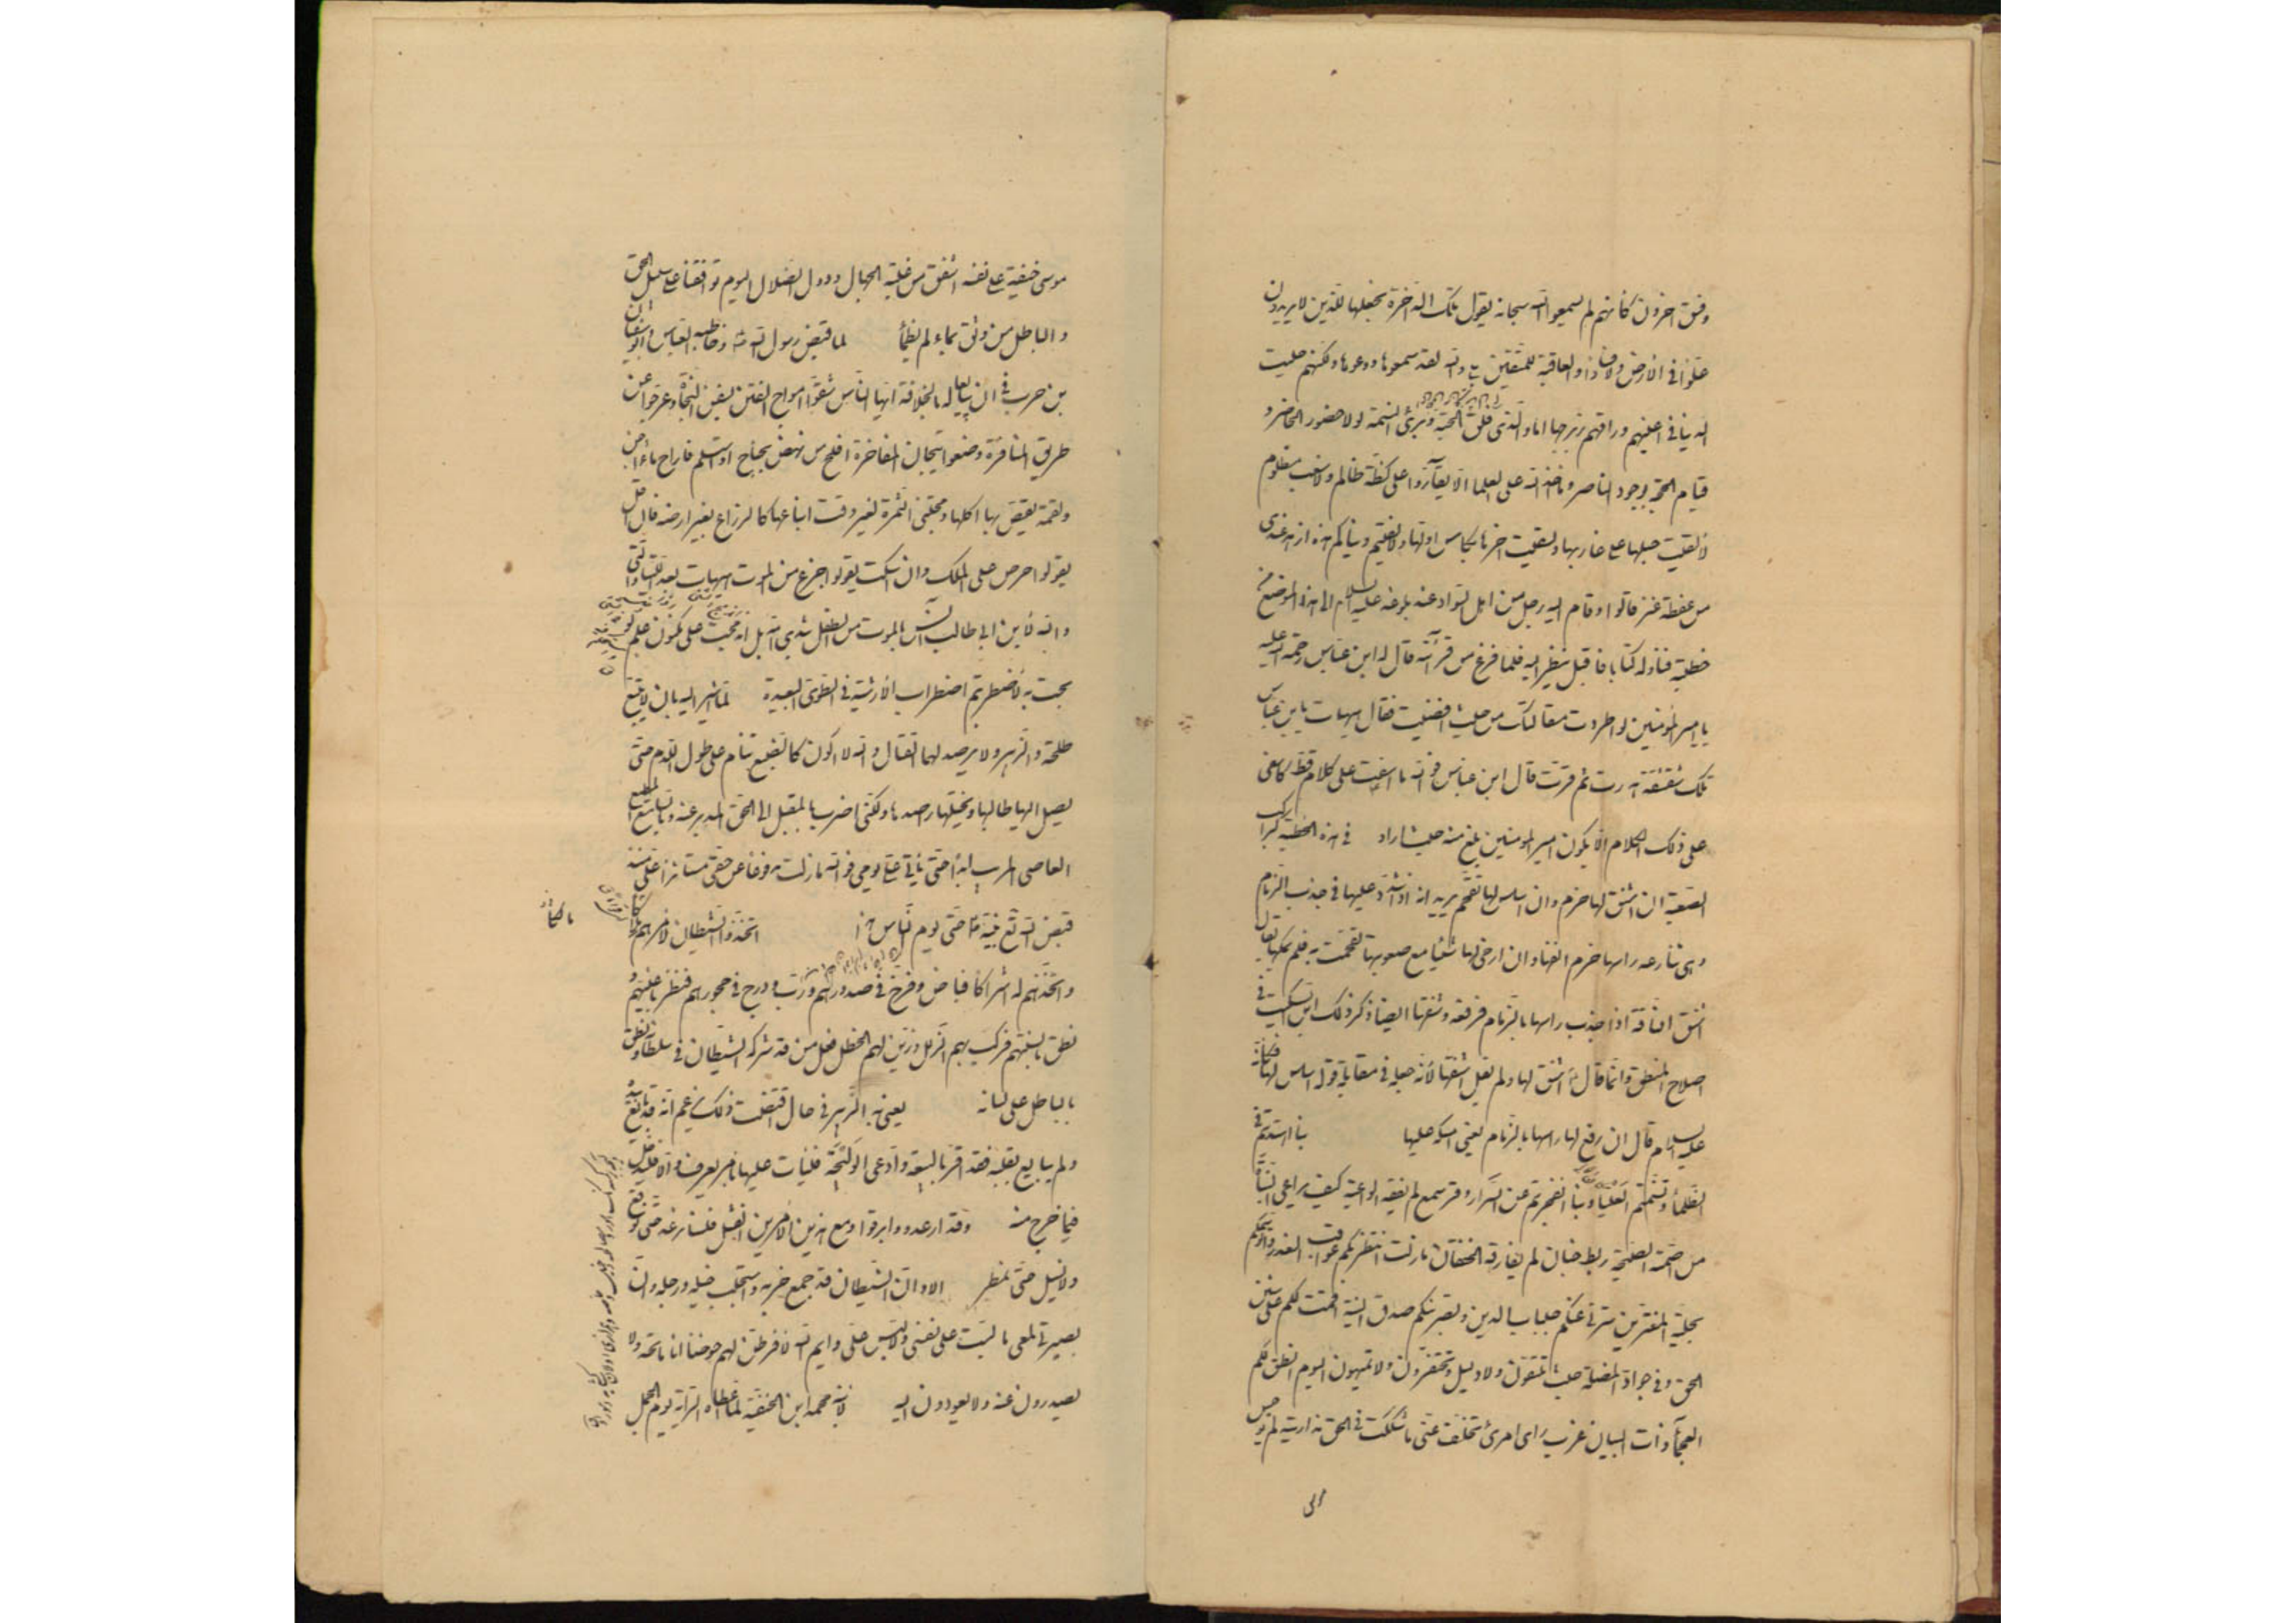 وفسق اخرون كانهم لم يسمعوا الله سبحانه يقول تلك الدار الاخرة نجعلها للذين لا يريدون
علوّا في الارض ولا فسادا والعاقبة للمتقين بلى والله لقد سمعوها ووعوها ولكنهم حليت
الدنيا في اعينهم وراقهم زبرجها اما والذى فلق الحبة وبرئ النسمة لولا حضور الحاضر و
قيام الحجة بوجود الناصر وما اخذ الله على العلماء الا يقارّوا على كظة ظالم ولا سغب مظلوم
لألقيت حبلها على غاربها ولسقيت اخرها بكأس اولها ولألفيتم دنياكم هذه ازهد عندى
من عفطة عنز قالوا وقام اليه رجل من اهل السواد عند بلوغه عليه السلام الى هذا الموضع من
خطبته فناوله كتابا فاقبل ينظر اليه فلما فرغ من قرآئته قال له ابن عباس رحمة الله عليه
يا امير المؤمنين لو اطردت مقالتك من حيث افضيت فقال هيهات يا بن عباس
تلك شقشقة هدرت ثم قرّت قال ابن عباس فو الله ما اسفت على كلام قط كاسفى
على ذلك الكلام الّا يكون امير المومنين بلغ منه حيث اراد في هذه الخطبة كراكب
الصعبة ان اشنق لها خرم وان اسلس لها تقحّم يريد انه اذا شدّد عليها في جذب الزمام
وهى تنازعه راسها خرم انفها وان ارخى لها شيئا مع صعوبتها تقحّمت به فلم يملكها يقال
اشنق الناقة اذا جذب راسها بالزمام فرفعه وشنقها ايضا ذكر ذلك ابن السكيت في
اصلاح المنطق وانما قال اشنق لها ولم يقل اشنقها لأنه جعله في مقابلة قوله اسلس لها فكأنه
عليه السلام قال ان رفع لها راسها بالزمام يعنى امسكه عليها بنا اهتديتم في
الظلماء وتسنّمتم العلياء وبنا انفجرتم عن السّرار وقر سمع لم يفقه الواعية كيف يراعى النبأة
من اصمّته الصيحة ربط جنان لم يفارقه الخفقان مازلت انتظر بكم عواقب الغدر واتوسمكم
بحلية المغترّين سترنى عنكم جلباب الدين وبصّرنيكم صدق النية اقمت لكم على سنن
الحق في جوادّ المضلّة حيث تلتقون ولا دليل وتحتفرون ولا تميهون اليوم انطق لكم
العجمآء ذات البيان غرب رأى امرئ تخلّف عنّى ما شككت في الحق مذ اريته لم يوجس
موسى خيفة على نفسه اشفق من غلبة الجهال ودول الضلال اليوم توافقنا على سبيل الحق
والباطل من وثق بماء لم يظمأ لما قبض رسول الله وخاطبه العباس وابوسفيان
بن حرب في ان يبايعا له بالخلافة ايها الناس شقّوا امواج الفتن بسفن النجاة وعرّجوا عن
طريق المنافرة وضعوا تيجان المفاخرة افلح من نهض بجناح او استسلم فاراح ماء اجن
ولقمة يغصّ بها اكلها ومجتنى الثمرة لغير وقت ايناعها كالزراع بغير ارضه فان اقل
يقولوا حرص على الملك وان اسكت يقولوا جزع من الموت هيهات بعد اللتيا والتى
والله لأبن ابى طالب آنس بالموت من الطفل بثدى امه بل اندمجت على مكنون علم لو
بحت به لأضطربتم اضطراب الارشية في الطوىّ البعيدة لمّا اشير اليه بان لا يتبع
طلحة والزبير ولا يرصد لهما القتال والله لا اكون كالضبع تنام على طول اللدم حتى
يصل اليها طالبها ويختلها راصدها ولكنى اضرب بالمقبل الى الحق المدبر عنه وبالسامع المطيع
العاصى المريب ابدا حتى يأتى علىّ يومى فو الله مازلت مدفوعا عن حقى مستأثرا علىّ منذ
قبض الله تع نبيه حتى يوم الناس هذا اتخذوا الشيطان لأمرهم ملاكا
واتخذهم له اشراكا فباض وفرّخ في صدورهم ودبّ ودرج في حجورهم فنظر باعينهم و
نطق بالسنتهم فركب بهم الزلل وزيّن لهم الخطل فعل من قد شركه الشيطان في سلطانه ونطق
بالباطل على لسانه يعنى به الزبير في حال اقتضت ذلك يزعم انه قد بايع بيده
ولم يبايع بقلبه فقد اقرّ بالبيعة وادّعى الوليجة فليأت عليها بامر يعرف والا فليدخل
فيما خرج منه وقد ارعدوا وابرقوا ومع هذين الامرين الفشل فلسنا نرعد حتى نوقع
ولا نسيل حتى نمطر الا وان الشيطان قد جمع حزبه واستجلب خيله ورجله وان
بصيرتى لمعى ما لبست على نفسى ولا لبس علىّ وايم الله لأفرطنّ لهم حوضا انا ماتحه ولا
يصدرون عنه ولا يعودون اليه لابنه محمد ابن الحنفية لمّا اعطاه الراية يوم الجمل